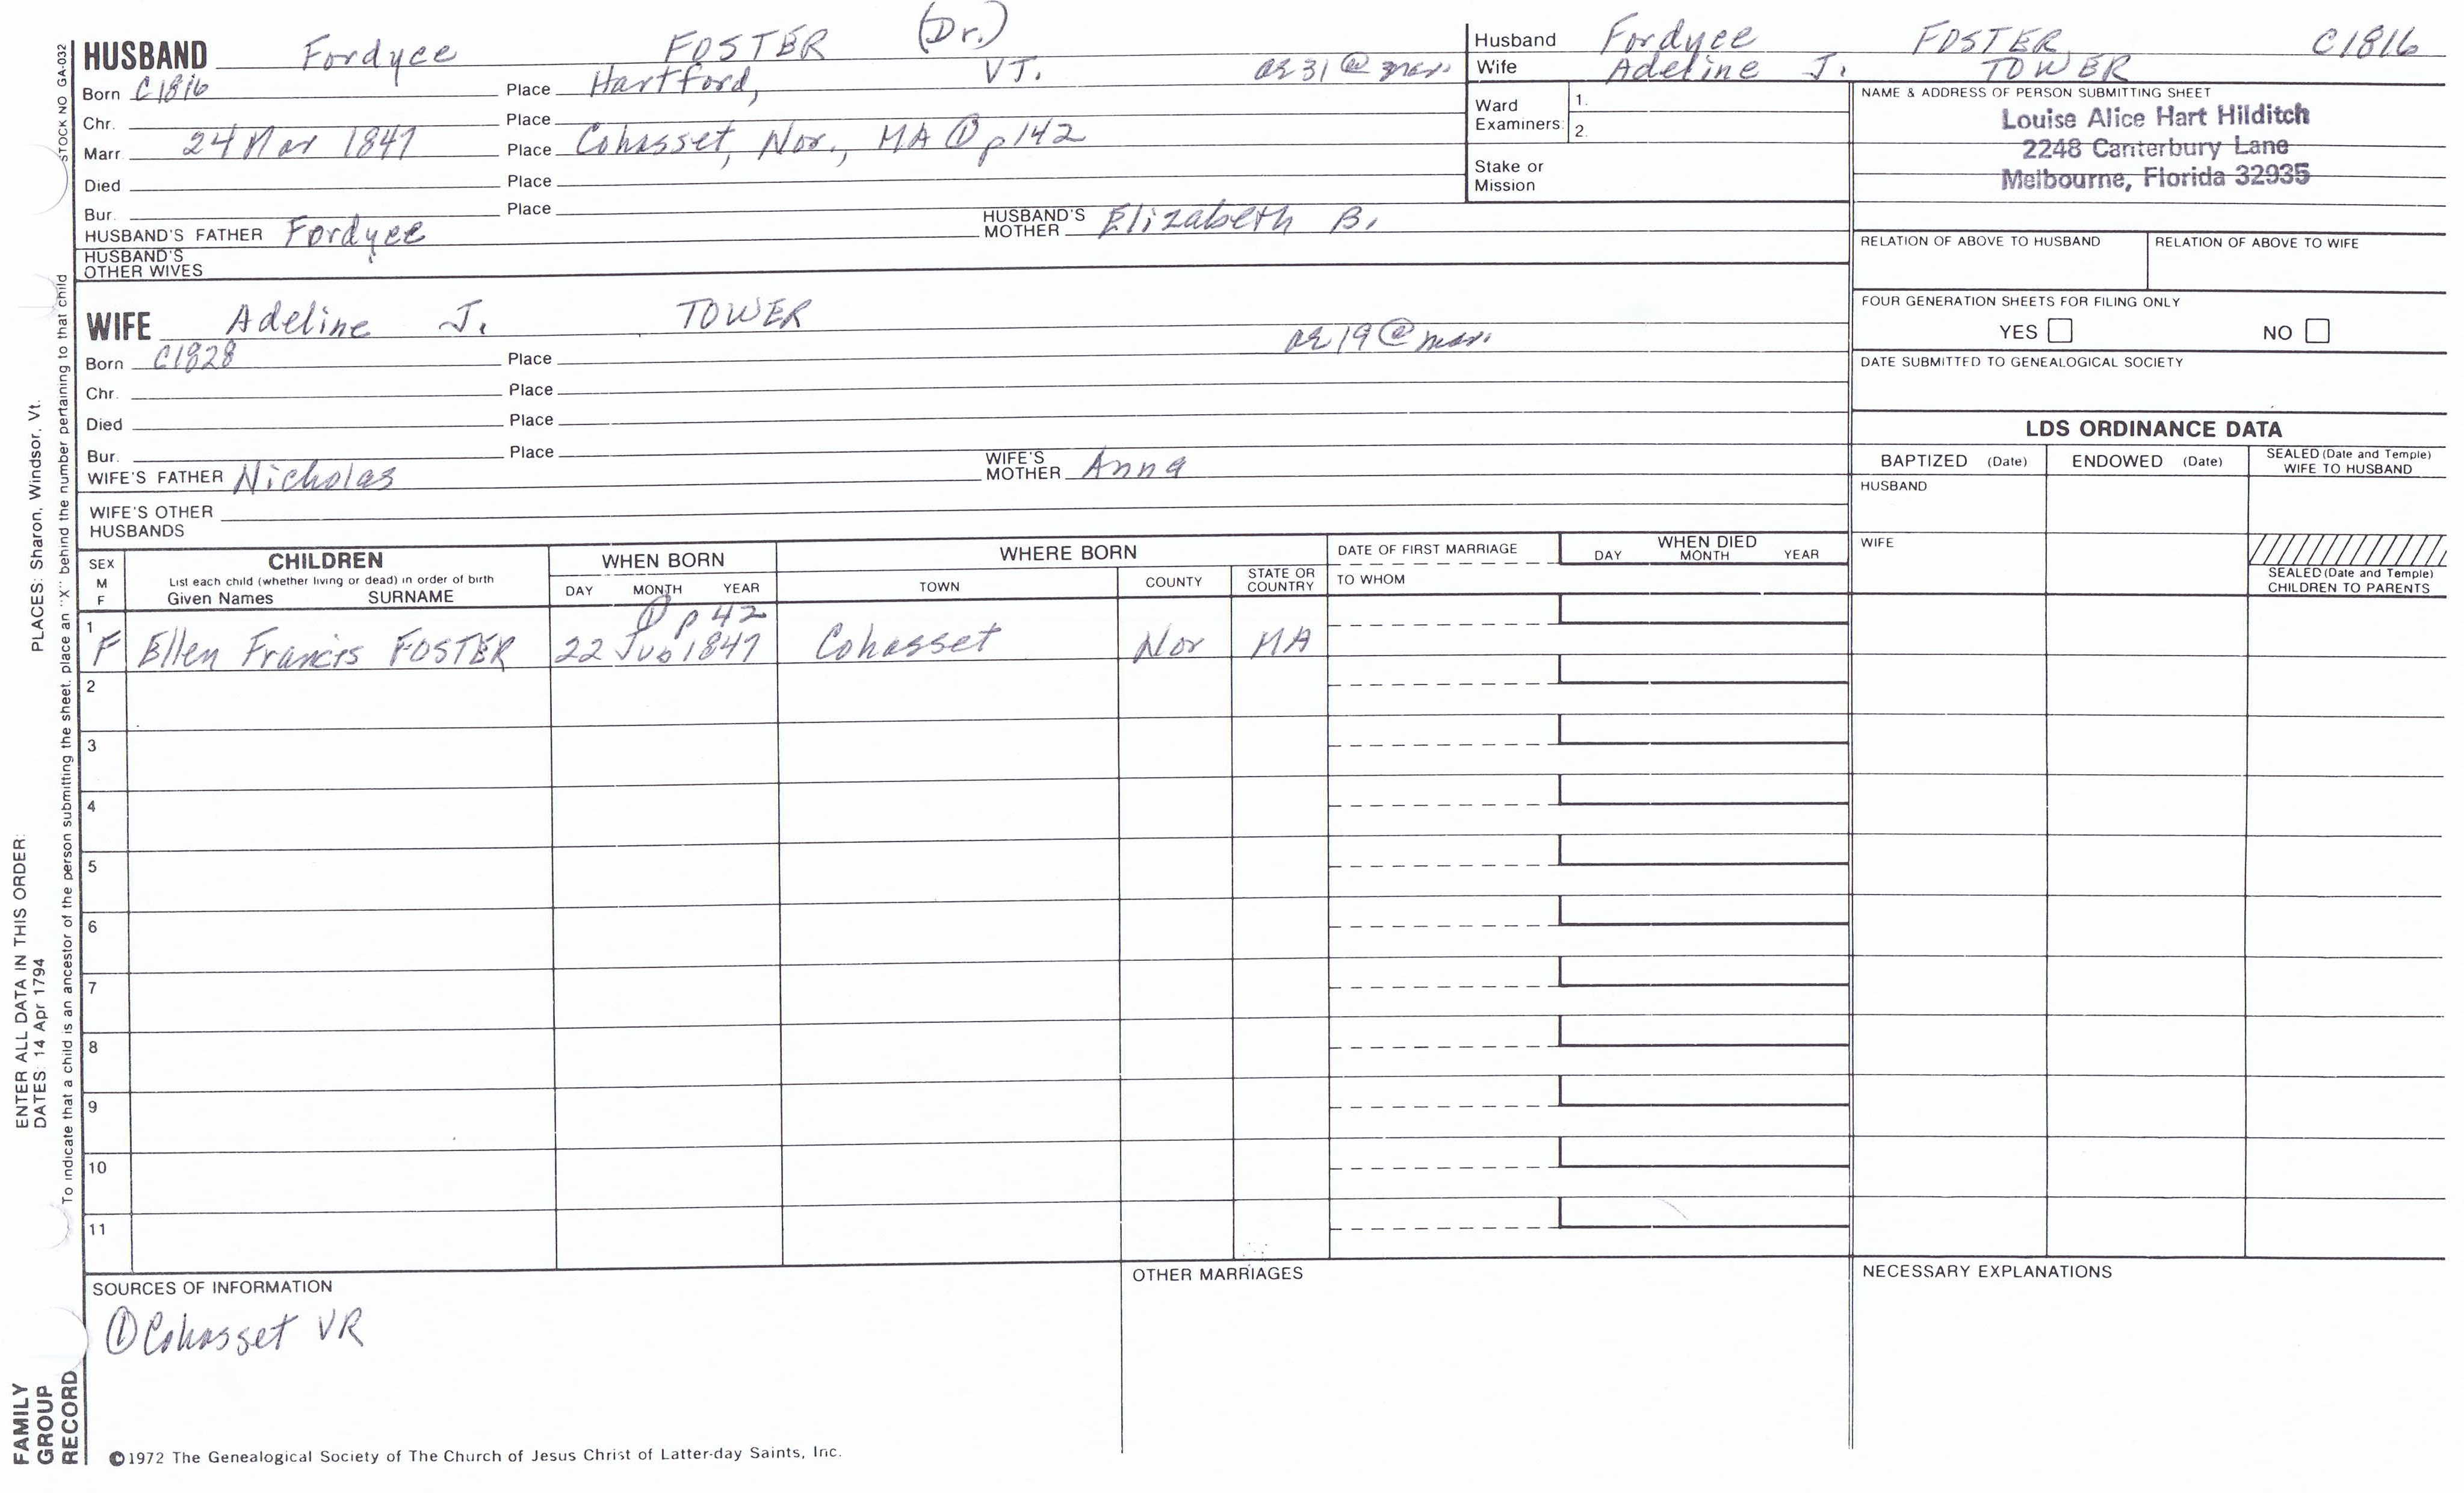 HUSBAND Fordyce FOSTER (Dr.)
Born C1816 Place Hartford, VT. ae 31 @ mar.
Chr. Place
Marr. 24 Mar 1847 Place Cohasset, Nor., MA ① p142
Died Place
Bur. Place
HUSBAND'S FATHER Fordyce HUSBAND'S MOTHER Elizabeth B.
HUSBAND'S OTHER WIVES
WIFE Adeline J. TOWER
Born C1828 Place ae 19 @ mar.
Chr. Place
Died Place
Bur. Place
WIFE'S FATHER Nicholas WIFE'S MOTHER Anna
WIFE'S OTHER HUSBANDS
Husband Fordyce FOSTER C1816
Wife Adeline J. TOWER
Ward Examiners: 1.
2.
Stake or Mission
NAME & ADDRESS OF PERSON SUBMITTING SHEET
Louise Alice Hart Hilditch
2248 Canterbury Lane
Melbourne, Florida 32935
RELATION OF ABOVE TO HUSBAND RELATION OF ABOVE TO WIFE
FOUR GENERATION SHEETS FOR FILING ONLY
YES NO
DATE SUBMITTED TO GENEALOGICAL SOCIETY
LDS ORDINANCE DATA
BAPTIZED (Date) ENDOWED (Date) SEALED (Date and Temple) WIFE TO HUSBAND
HUSBAND
WIFE
SEALED (Date and Temple) CHILDREN TO PARENTS
SEX M F CHILDREN WHEN BORN WHERE BORN DATE OF FIRST MARRIAGE WHEN DIED
List each child (whether living or dead) in order of birth
Given Names SURNAME DAY MONTH YEAR TOWN COUNTY STATE OR COUNTRY TO WHOM DAY MONTH YEAR
① p 42
1 F Ellen Francis FOSTER 22 1847 Cohasset Nor MA
2
3
4
5
6
7
8
9
10
11
SOURCES OF INFORMATION OTHER MARRIAGES NECESSARY EXPLANATIONS
① Cohasset VR
©1972 The Genealogical Society of The Church of Jesus Christ of Latter-day Saints, Inc.
STOCK NO GA-032
To indicate that a child is an ancestor of the person submitting the sheet, place an "X" behind the number pertaining to that child
ENTER ALL DATA IN THIS ORDER:
DATES: 14 Apr 1794 PLACES: Sharon, Windsor, Vt.
FAMILY
GROUP
RECORD